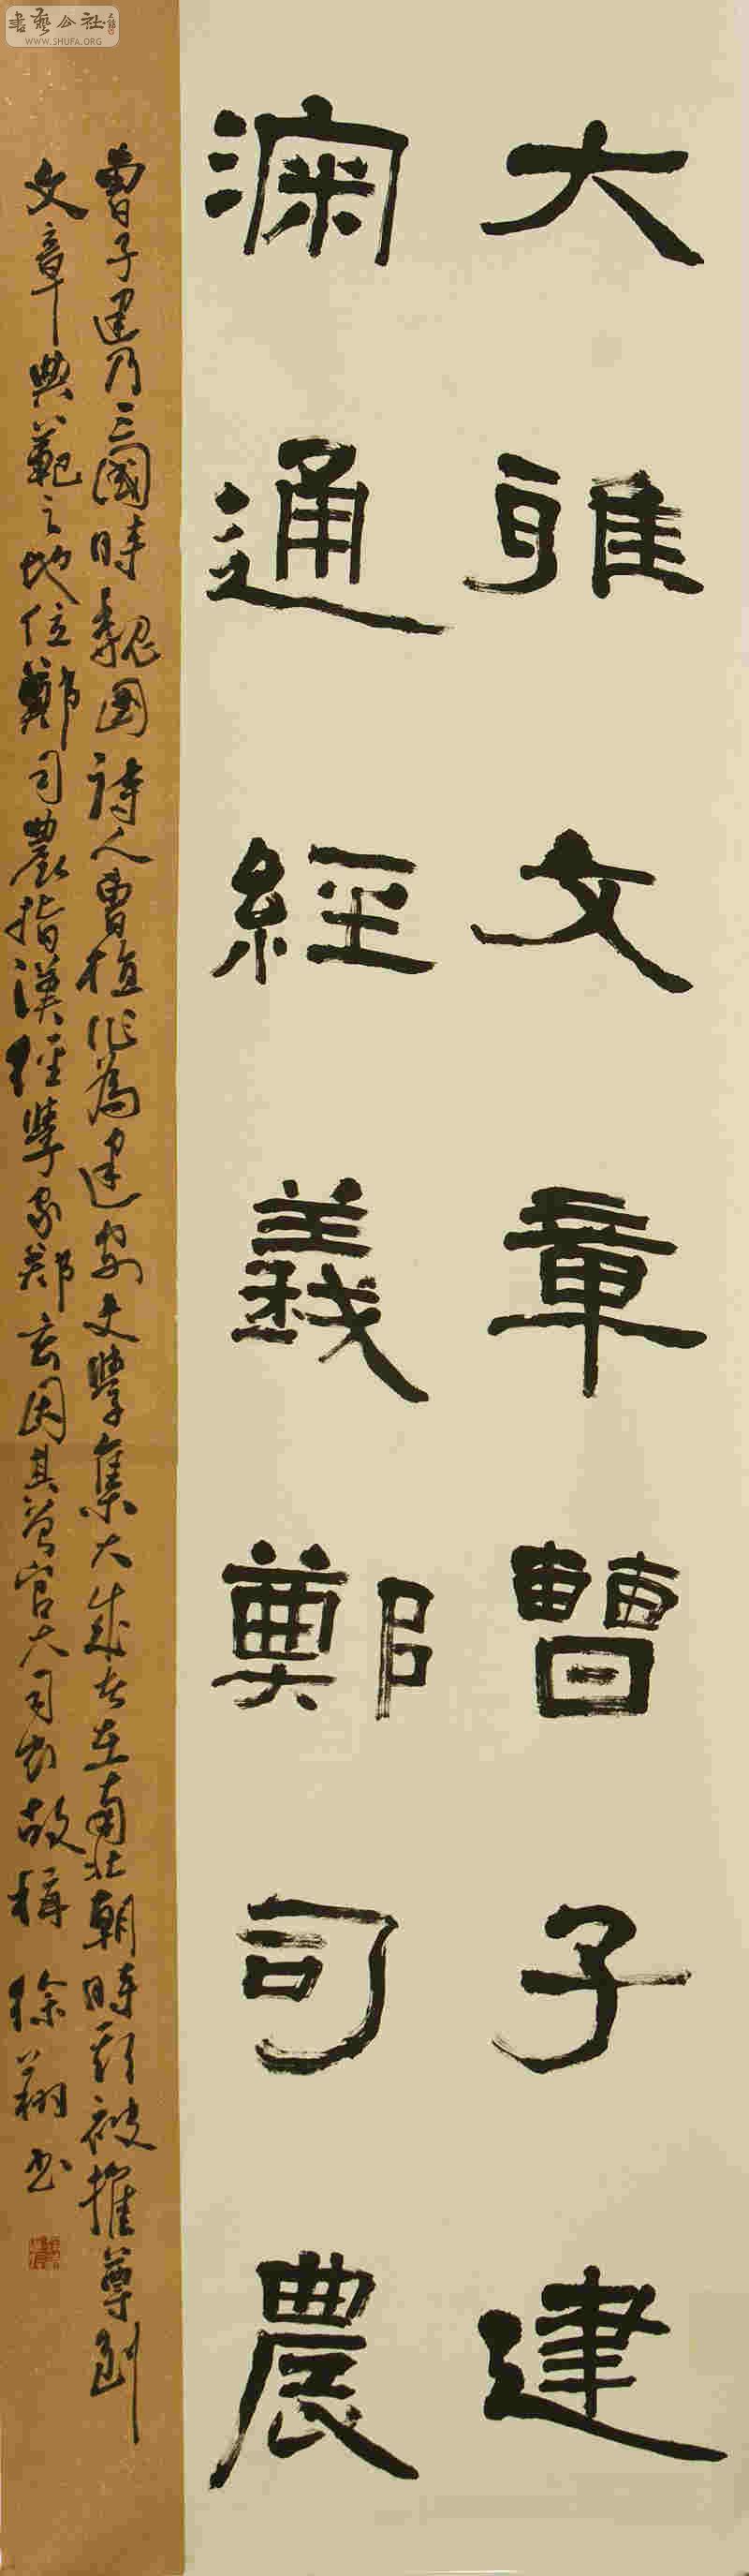 書藝公社
WWW.SHUFA.ORG
大雅文章曹子建
深通經義鄭司農
曹子建乃三國時魏国詩人曹植作為建安文學集大成者在南北朝時期被推尊到
文章典範之地位鄭司農指漢經學家鄭玄因其曾官大司農故稱 徐翔书